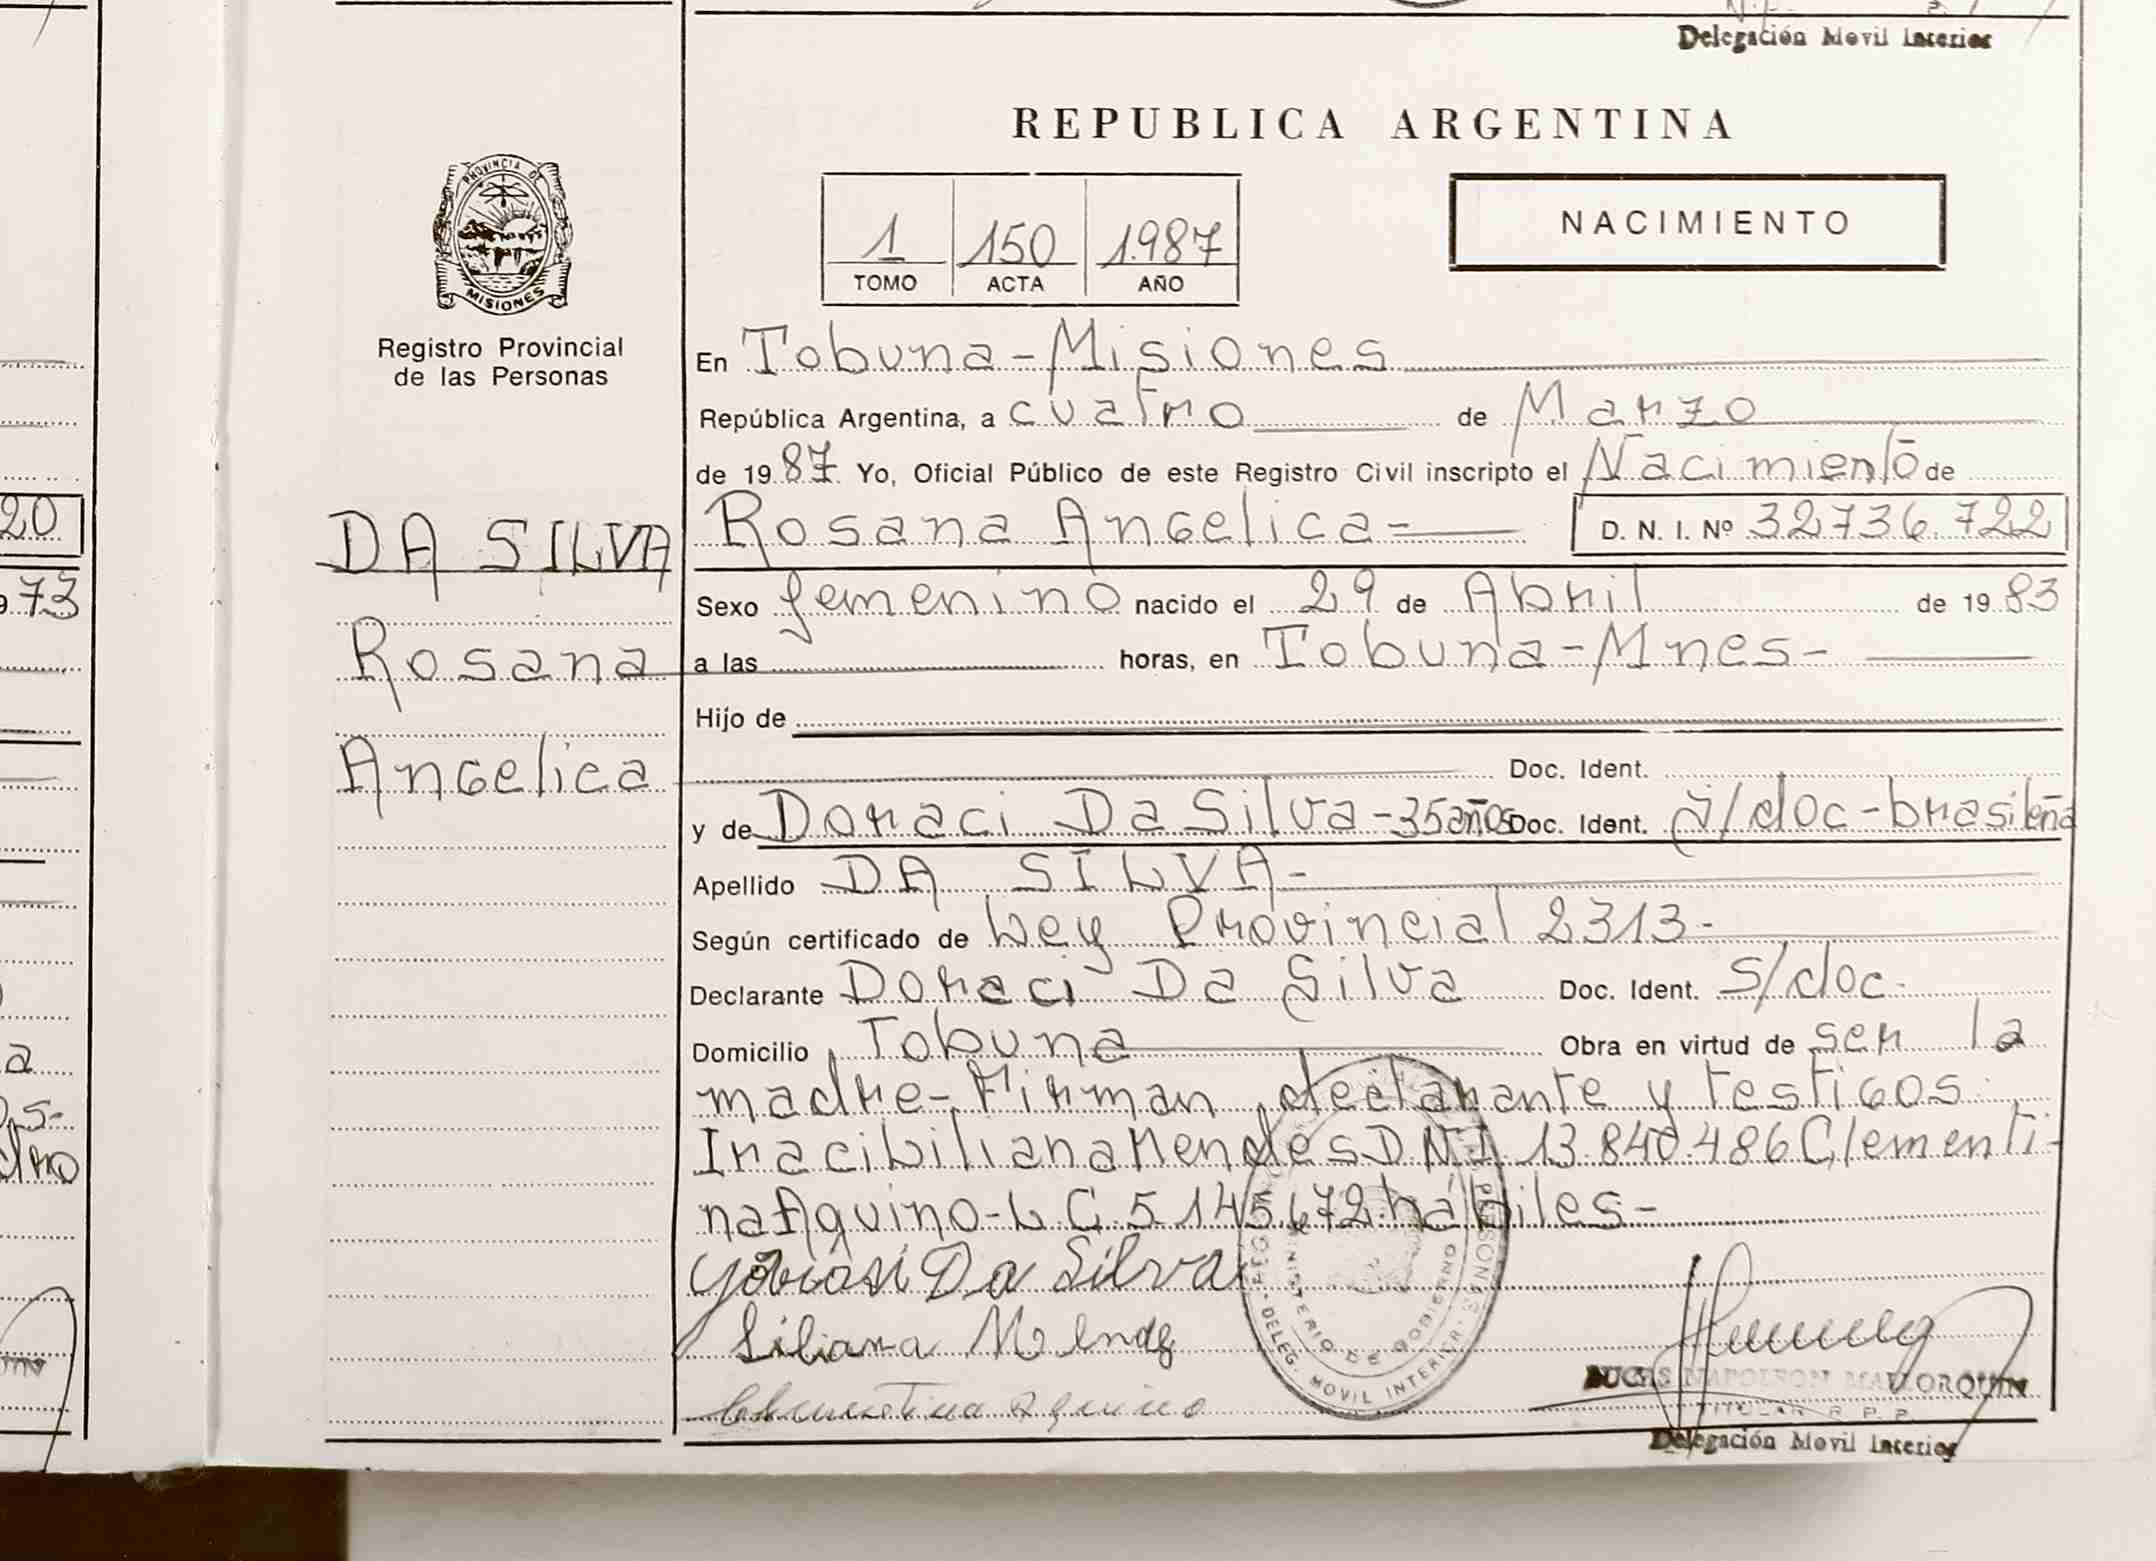 Delegación Movil Interior
REPUBLICA ARGENTINA
PROVINCIA DE
MISIONES
Registro Provincial
de las Personas
1 150 1.987
TOMO ACTA AÑO
NACIMIENTO
En Tobuna-Misiones
República Argentina, a cuatro de Marzo
de 19 87. Yo, Oficial Público de este Registro Civil inscripto el Nacimiento de
DA SILVA
Rosana
Angelica
Rosana Angelica= D. N. I. Nº 32736.722
Sexo femenino nacido el 29 de Abril de 19 83
a las horas, en Tobuna-Mnes-
Hijo de
Doc. Ident.
y de Doraci Da Silva-35años Doc. Ident. s/doc-brasileña
Apellido DA SILVA-
Según certificado de Ley Provincial 2313-
Declarante Doraci Da Silva Doc. Ident. s/doc-
Domicilio Tobuna Obra en virtud de ser la
madre-Firman declarante y testigos:
Iraci Liliana Mendes D.N.I 13.840.486 Clementi-
na Aquino-L.C.5.145.672 hábiles-
Da Silva
Liliana
Clementina Aquino
20
73
a
DELEG. MOVIL INTERIOR
MINISTERIO DE GOBIERNO
NAPOLEON MALLORQUIN
TITULAR R. P. P.
Delegación Movil Interior